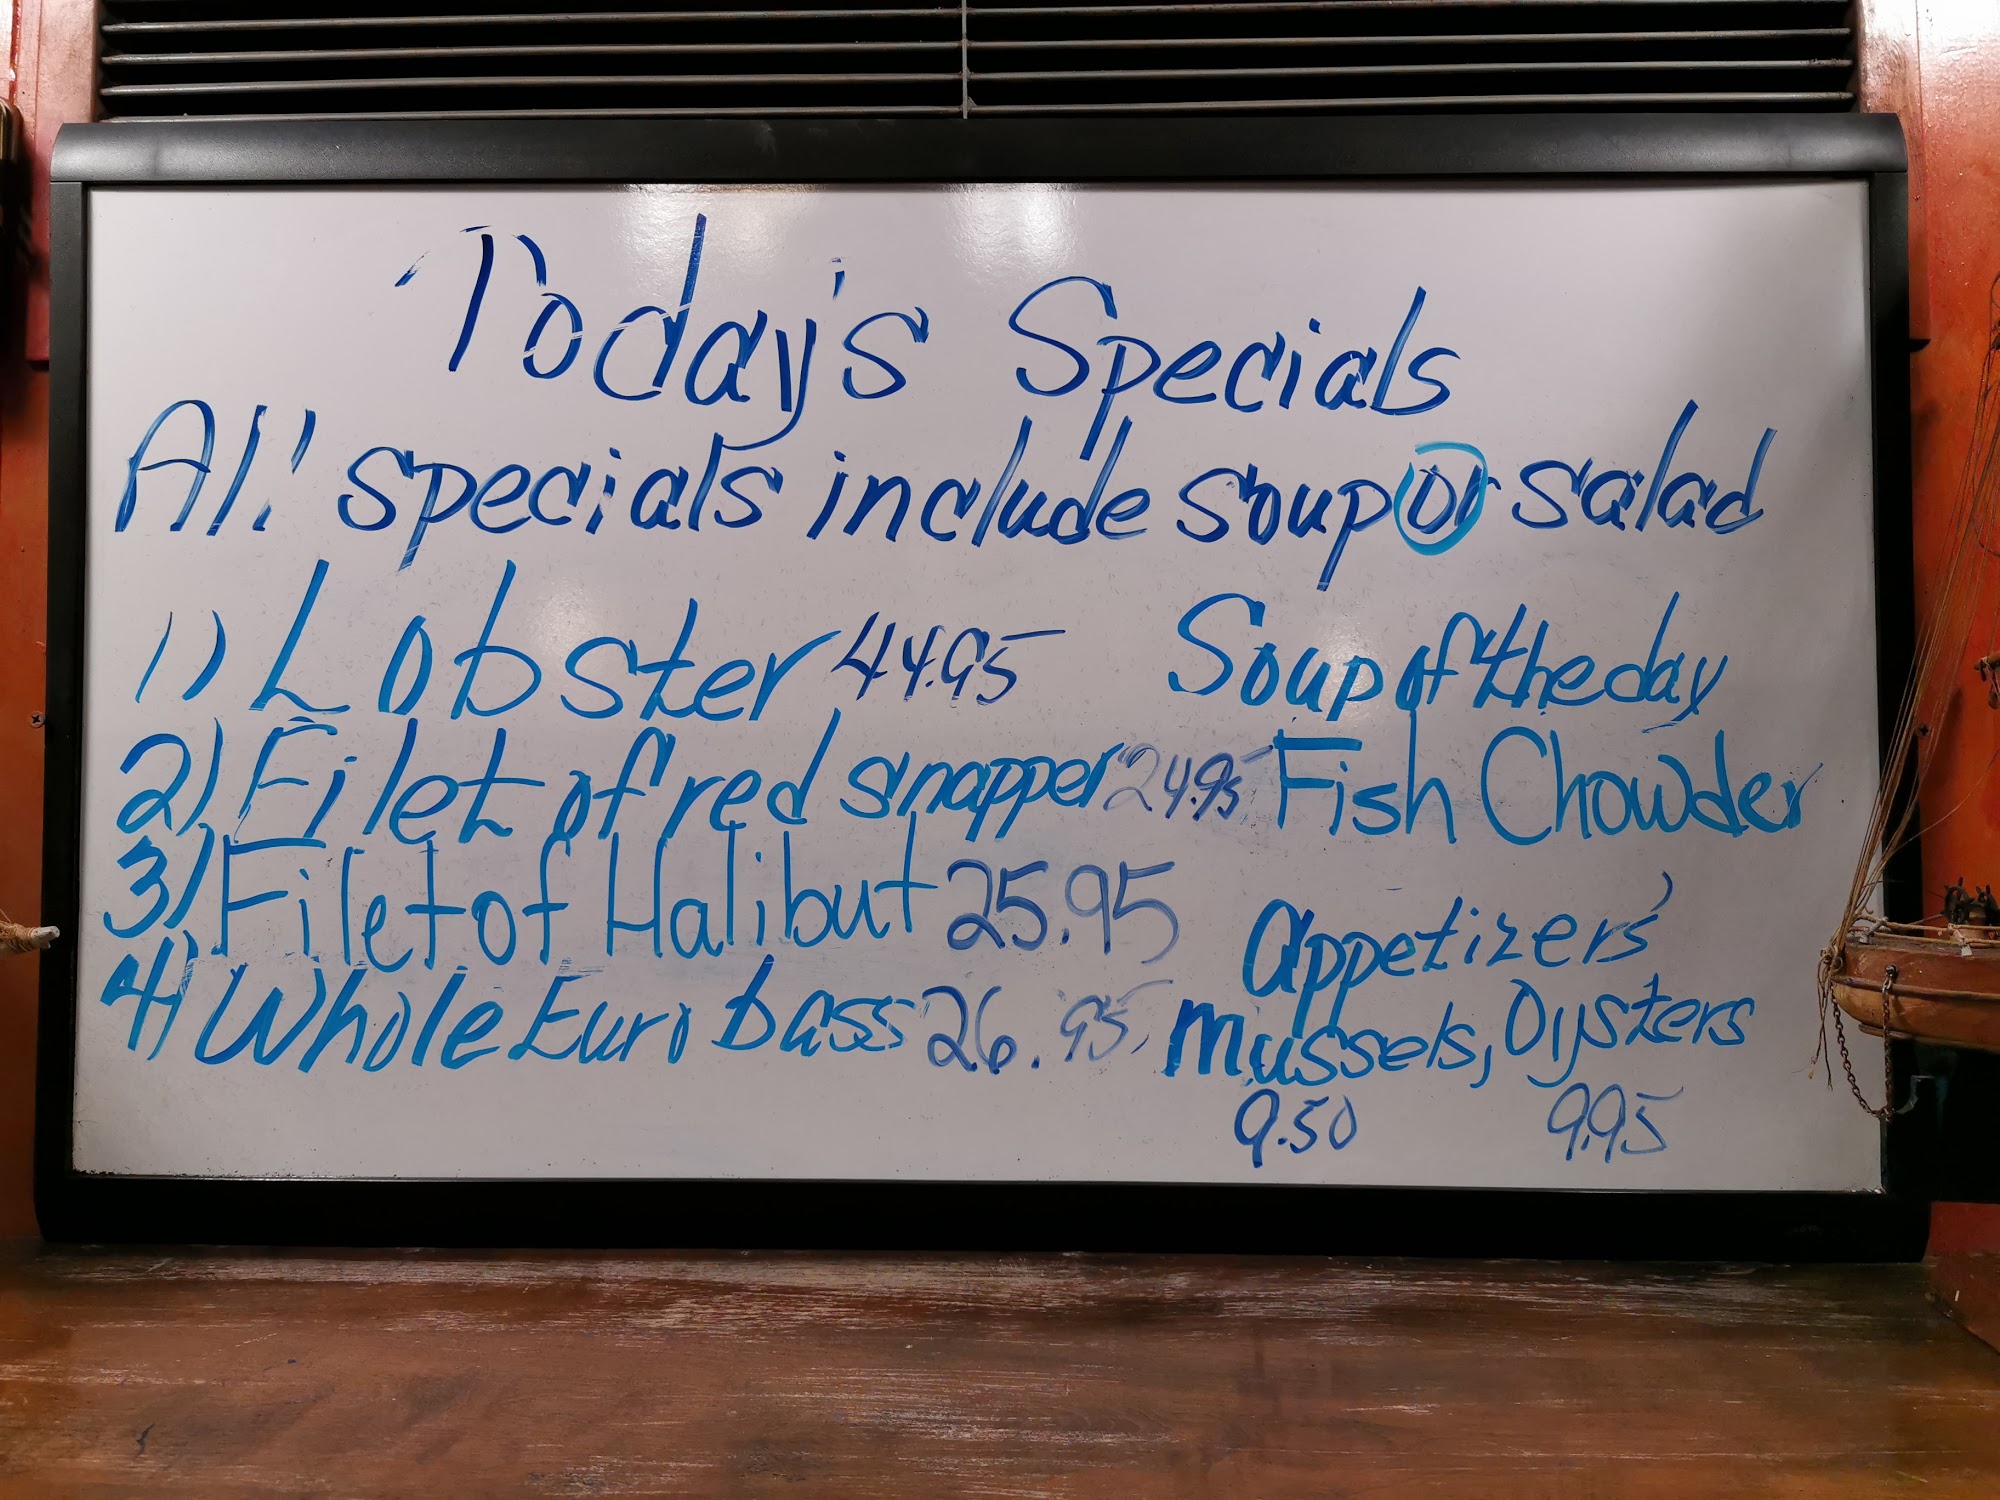 Today's Specials
All specials include soup or salad
1) Lobster 44.95
2) Filet of red snapper 24.95
3) Filet of Halibut 25.95
4) Whole Euro bass 26.95
Soup of the day
Fish Chowder
Appetizers'
Mussels, Oysters
9.50 9.95